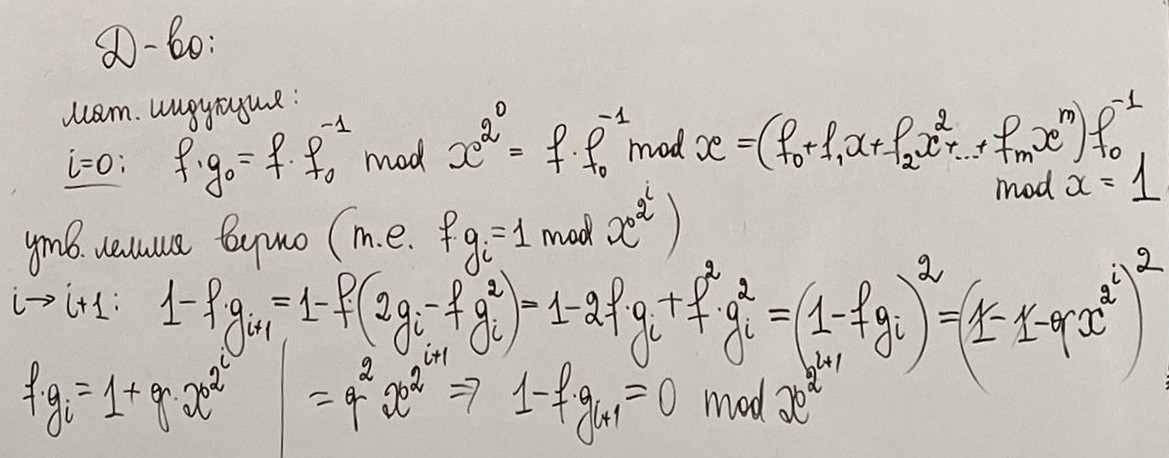 Д-во:
мат. индукция:
i=0: f·g₀ = f·f₀⁻¹ mod x^{2^0} = f·f₀⁻¹ mod x = (f₀+f₁x+f₂x²+...+f_m x^m) f₀⁻¹
mod x = 1
утв. леммы верно (т.е. f g_i = 1 mod x^{2^i})
i→i+1: 1-f·g_{i+1} = 1-f(2g_i-f g_i²) = 1-2f·g_i+f²·g_i² = (1-f g_i)² = (1-1-q x^{2^i})²
f·g_i = 1+q·x^{2^i} | = q² x^{2^{i+1}} ⇒ 1-f·g_{i+1} = 0 mod x^{2^{i+1}}